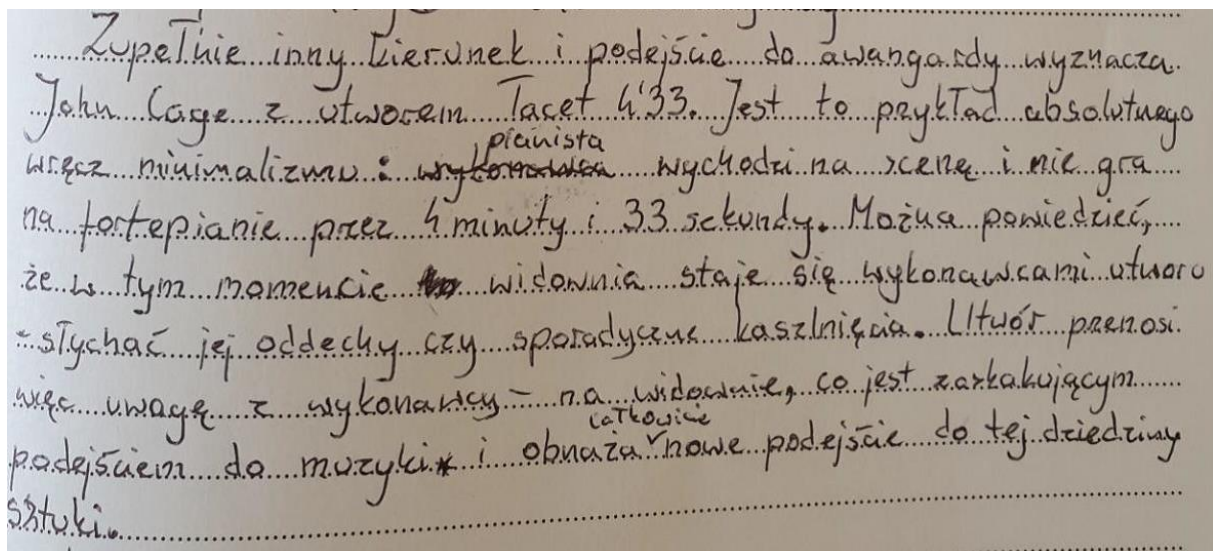 Zupełnie inny kierunek i podejście do awangardy wyznacza
John Cage z utworem Tacet 4'33. Jest to przykład absolutnego
wręcz minimalizmu: pianista wychodzi na scenę i nie gra
na fortepianie przez 4 minuty i 33 sekundy. Można powiedzieć,
że w tym momencie widownia staje się wykonawcami utworu
- słychać jej oddechy czy sporadyczne kaszlnięcia. Utwór przenosi
więc uwagę z wykonawcy - na widownie, co jest zaskakującym
podejściem do muzyki i obnaża całkowicie nowe podejście do tej dziedziny
sztuki.